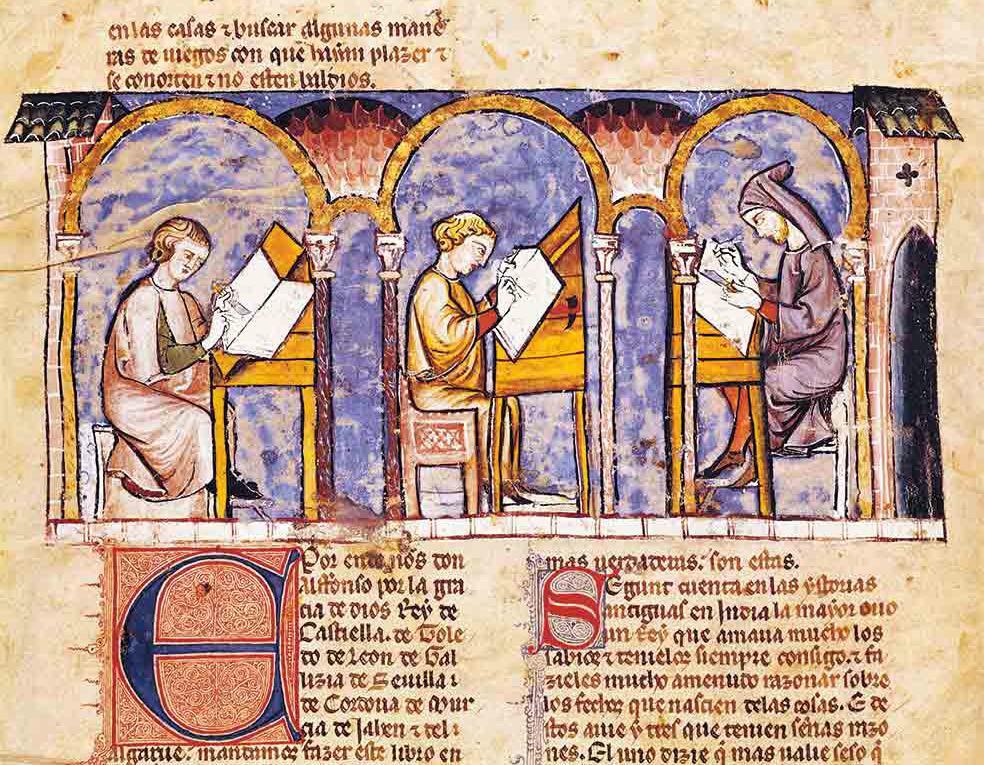 en las casas ⁊ buscar algunas mane
ras de iuegos con que hayan plazer ⁊
se conorten ⁊ no esten baldios.
E Por ende nos don
Alffonso por la gra
cia de dios Rey de
Castiella. de Tole
do de Leon de Gal
lizia de Seuilla i
de Cordoua de Mur
cia de Jahen ⁊ del
algarue. mandamos fazer este libro en
mas uerdaderas. son estas.
Segunt cuenta en las ystorias
antiguas en India la mayor ouo
un Rey que amaua mucho los
sabios ⁊ tenielos siempre consigo. ⁊ fa
zieles mucho amenudo razonar sobre
los fechos que nascien delas cosas. E de
stos auie y tres que tenien sennas razo
nes. El uno dizie q̃ mas ualie seso q̃